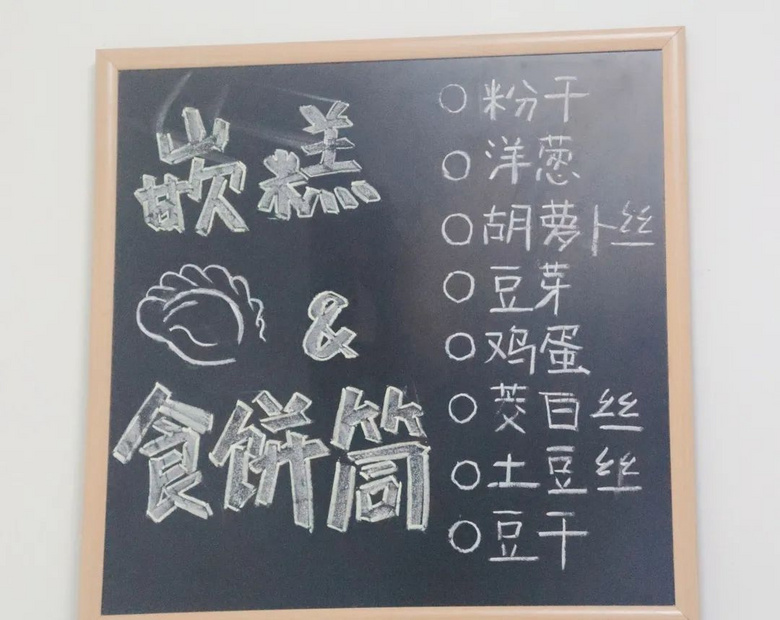 嵌糕
&
食饼筒
○ 粉干
○ 洋葱
○ 胡萝卜丝
○ 豆芽
○ 鸡蛋
○ 茭白丝
○ 土豆丝
○ 豆干